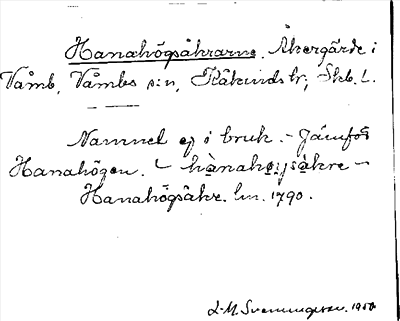 Hanahögsåkrarne. Åkergärde i
Våmb, Våmbs s:n, Kåkinds hr, Skb. l.
Namnet ej i bruk. - Jämför
Hanahögen. - hànahø̀gsåkre -
Hanahögsåkr. lm. 1790.
L-M. Svenungsson. 1950